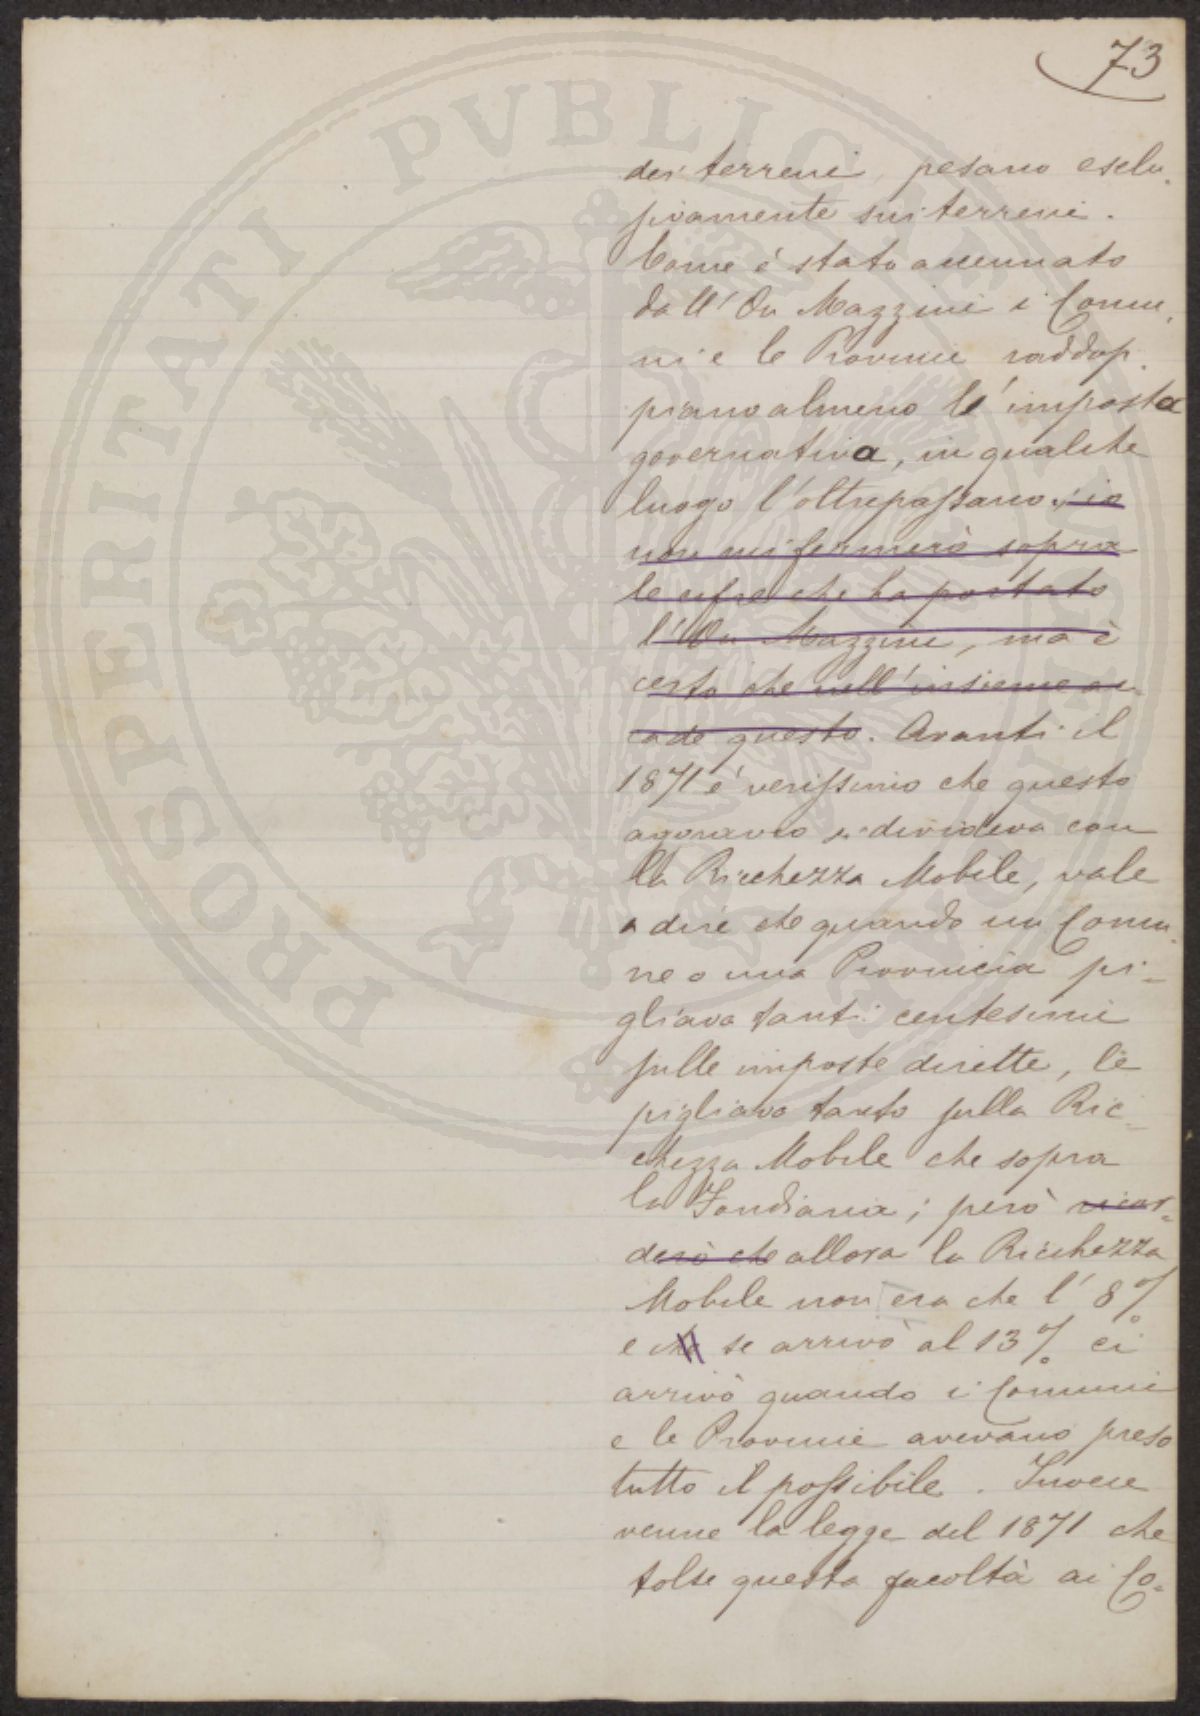 73
dei terreni, pesano esclu-
sivamente sui terreni.
Come è stato accennato
dall'On Mazzini i Comu-
ni e le Provincie raddop-
piano almeno l'imposta
governativa, in qualche
luogo l'oltrepassano; io
non mi fermerò sopra
le cifre che ha portato
l'On Mazzini, ma è
certo che nell'insieme ac-
cade questo. Avanti il
1871 è verissimo che questo
aggravio si divideva con
la Ricchezza Mobile, vale
a dire che quando un Comu-
ne o una Provincia pi-
gliava tanti centesimi
sulle imposte dirette, le
pigliava tanto sulla Ric-
chezza Mobile che sopra
la Fondiaria; però ricor-
derò che allora la Ricchezza
Mobile non era che l'8%
e che se arrivò al 13% ci
arrivò quando i Comuni
e le Provincie avevano preso
tutto il possibile. Invece
venne la legge del 1871 che
tolse questa facoltà ai Co-
PROSPERITATI PVBLICAE